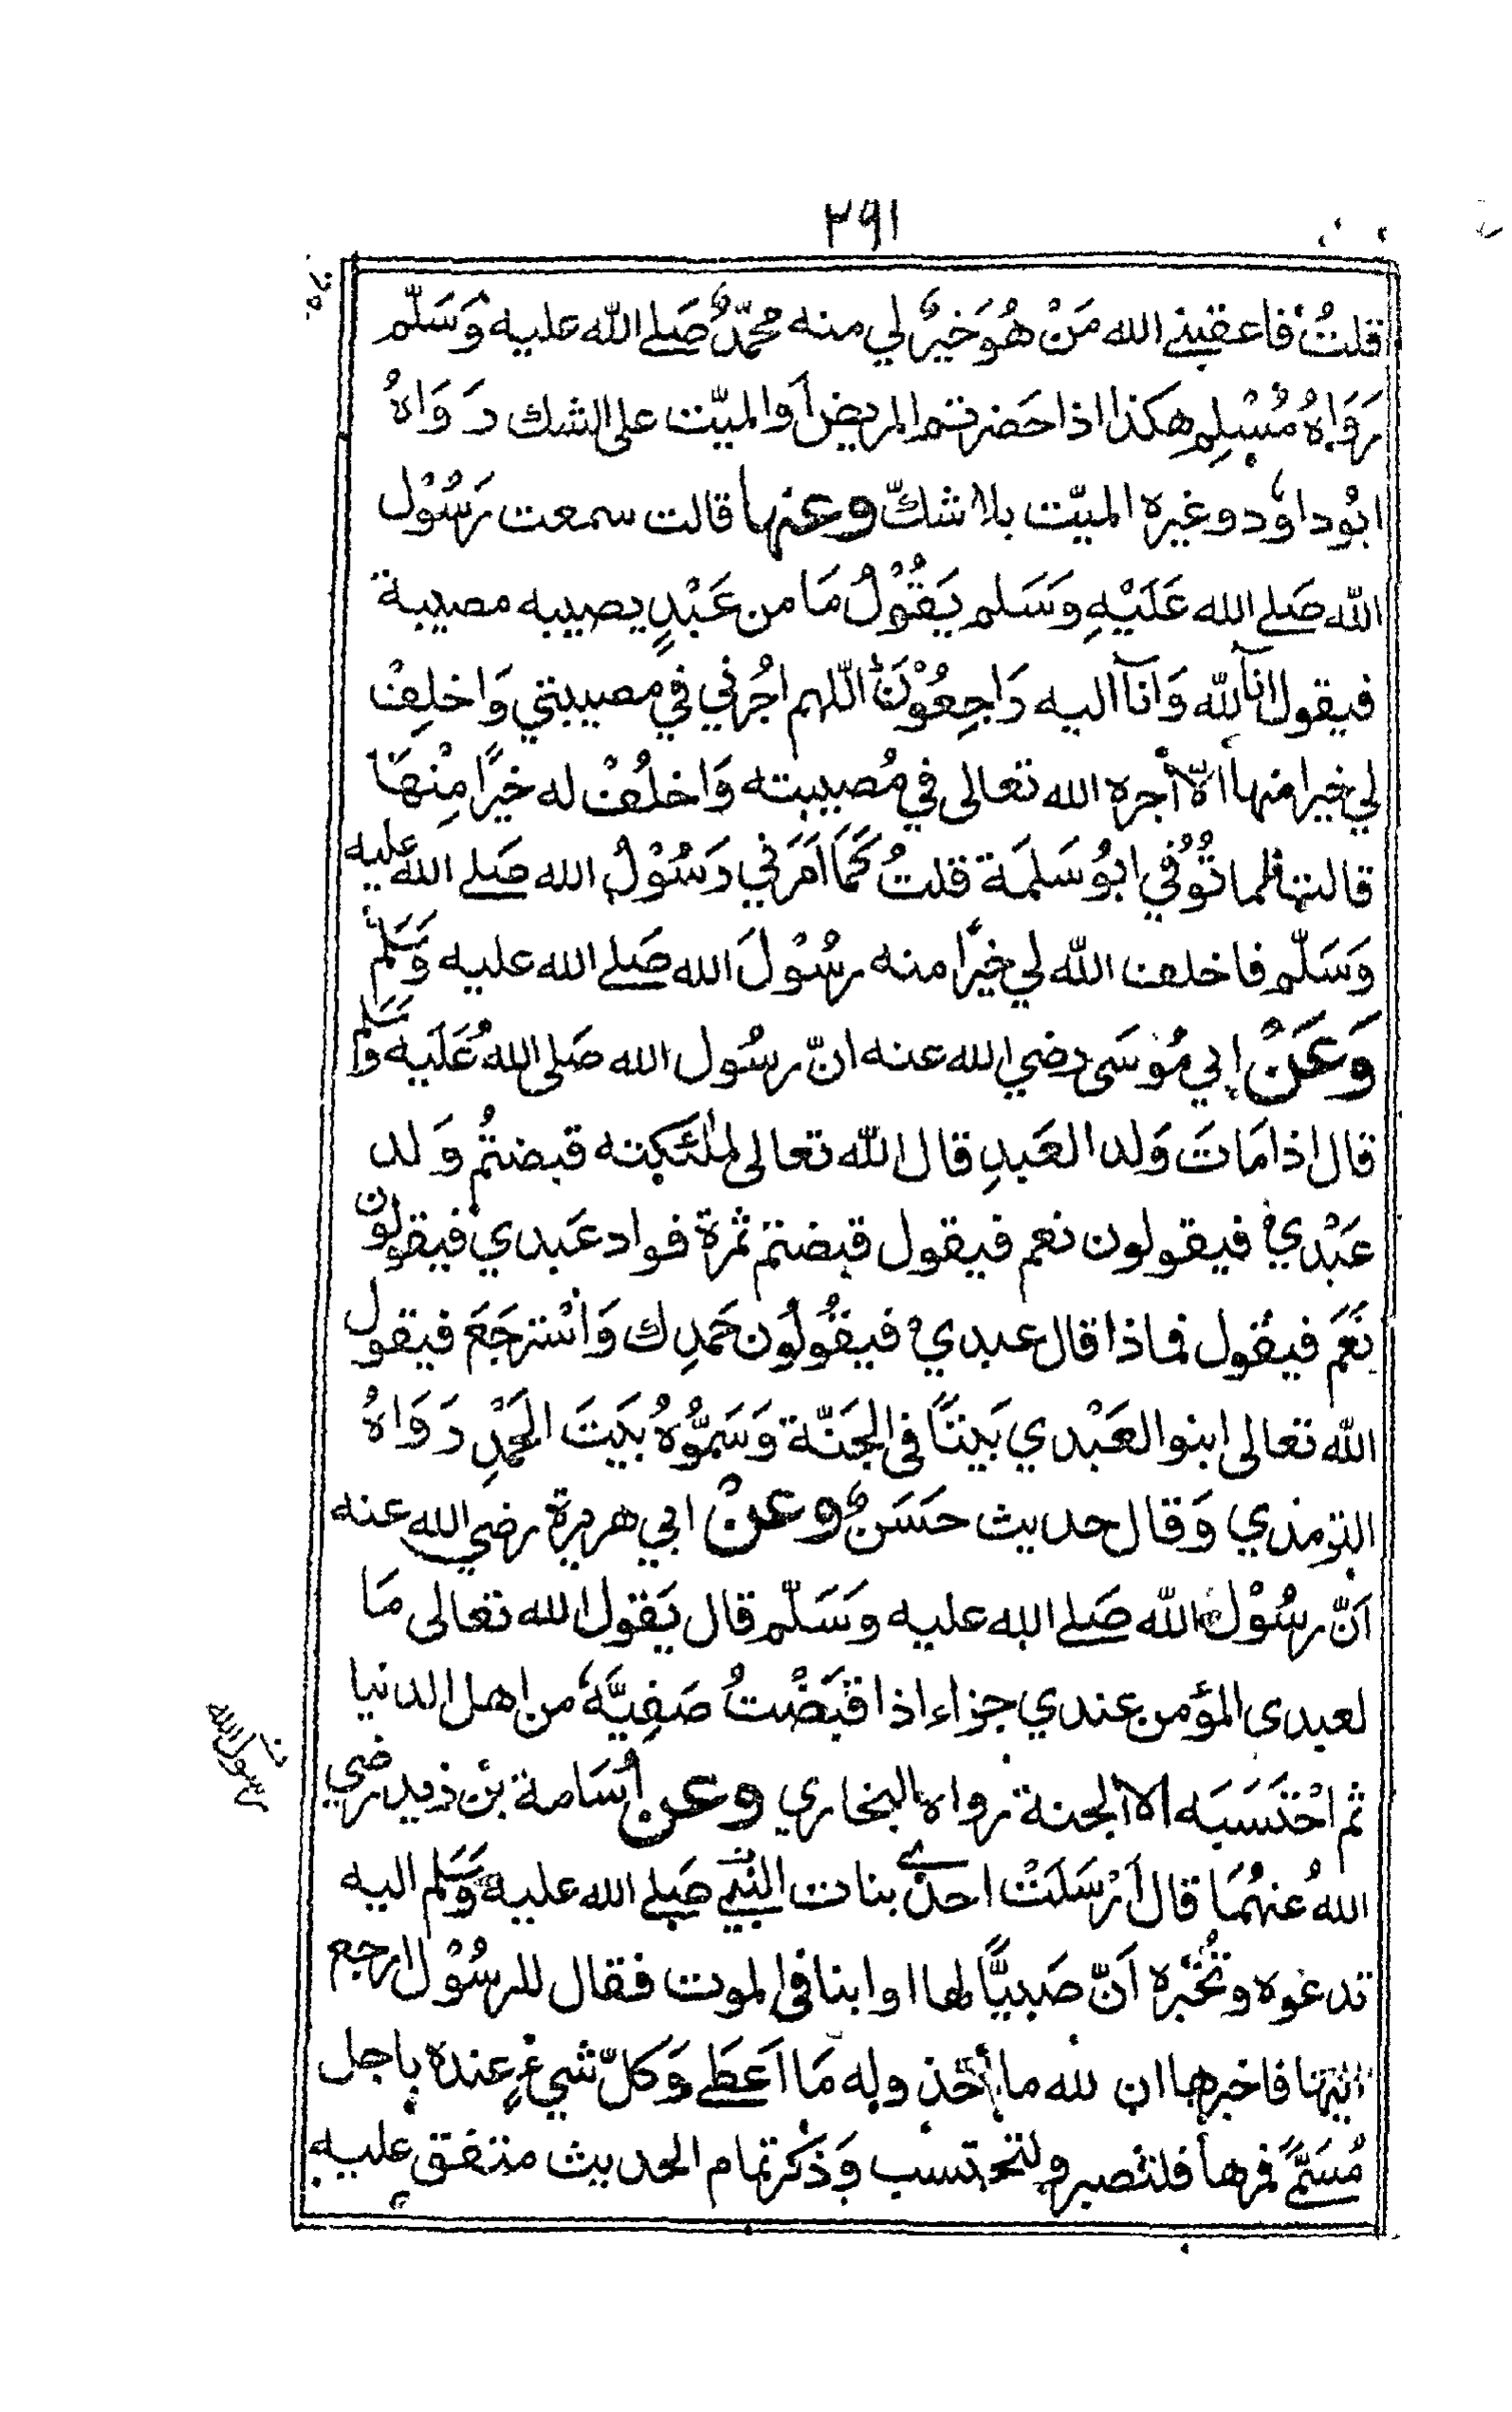 ٣٩١
قلتُ فاعقبنے الله مَنْ هُوَ خيرٌ لي منه محمّدٌ صَلے الله عليه وَسَلّم
رَوَاهُ مُسْلِم هكذا اذا حَضرتم المريض اَو الميّت على الشك رَوَاهُ
ابُو داوٗد وغيره الميّت بلا شكّ وعنها قالت سمعت رَسُوْل
الله صَلے الله عَلَيْهِ وَسَلم يَقُوْلُ مَا من عَبْدٍ يصيبه مصيبة
فيقول انا لله وَانآ اليه رَاجِعُوْنَ اللّهم اجُرني في مصيبتي وَاخلِفْ
لي خيرا منها الّا أجره الله تعالى في مُصيبته وَاخلُفْ له خيرًا مِنْهَا
قالت فلما تُوُفي ابُو سَلمَة قلتُ كَمَا اَمَرَني رَسُوْلُ الله صَلے الله عليه
وَسَلّم فاخلف الله لي خيرًا منه رسُوْلَ الله صَلے الله عليه وَسَلّم
وَعَنْ ابي مُوْسَى رضي الله عنه انّ رسُول الله صَلى اللهُ عَلَيه وَسَلم
قال اذا مَاتَ وَلد العَبدِ قال الله تعالى لملٰئكته قبضتُم وَلد
عَبْدي فيقولون نعم فيقول قبضتم ثمرة فواد عَبدي فيقولون
نَعَم فيقول فماذا قال عبدي فيقُولُون حَمِدك وَاسْترجَعَ فيقول
الله تعالى ابنوا لعَبْدي بَيتًا فى الجَنّة وَسَمُّوْهُ بَيتَ الحَمْدِ رَوَاهُ
الترمذي وَقال حديث حَسَنٌ وعنْ ابي هريرة رضي الله عنه
اَنّ رسُوْل الله صَلے الله عليه وَسَلّم قال يَقول الله تعالى مَا
لعبدى المؤمن عندي جزاء اذا قَبَضْتُ صَفِيَّهٗ من اهل الدنيا
ثم احْتَسَبَه الا الجنة رواه البخاري وعن اُسَامة بن زيد رضي
اللهُ عنهُمَا قال اَرْسَلَتْ احدى بنات النبي صَلے الله عليه وَسَلم اليه
رسول الله
تدعوه وتُخْبره اَنّ صَبيًّا لها او ابنا فى الموت فقال للرسُوْل ارجع
اليها فاخبرها ان لله ما أخذ وله مَا اَعطَے وَكلّ شيءٍ عنده باجل
مُسَمًّى فمرها فلتصبر ولتحتسب وَذَكر تمام الحديث متفق عليه